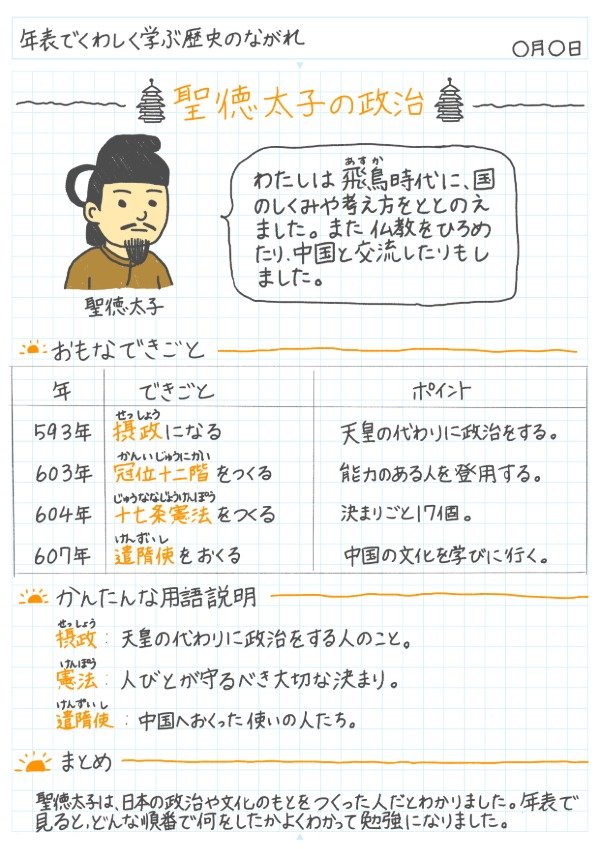 年表でくわしく学ぶ歴史のながれ
〇月〇日
聖徳太子の政治
あすか
わたしは飛鳥時代に、国
のしくみや考え方をととのえ
ました。また仏教をひろめ
たり、中国と交流したりもし
ました。
聖徳太子
おもなできごと
年 できごと ポイント
せっしょう
593年 摂政になる 天皇の代わりに政治をする。
かんいじゅうにかい
603年 冠位十二階をつくる 能力のある人を登用する。
じゅうななじょうけんぽう
604年 十七条憲法をつくる 決まりごと17個。
けんずいし
607年 遣隋使をおくる 中国の文化を学びに行く。
かんたんな用語説明
せっしょう
摂政：天皇の代わりに政治をする人のこと。
けんぽう
憲法：人びとが守るべき大切な決まり。
けんずいし
遣隋使：中国へおくった使いの人たち。
まとめ
聖徳太子は、日本の政治や文化のもとをつくった人だとわかりました。年表で
見ると、どんな順番で何をしたかよくわかって勉強になりました。